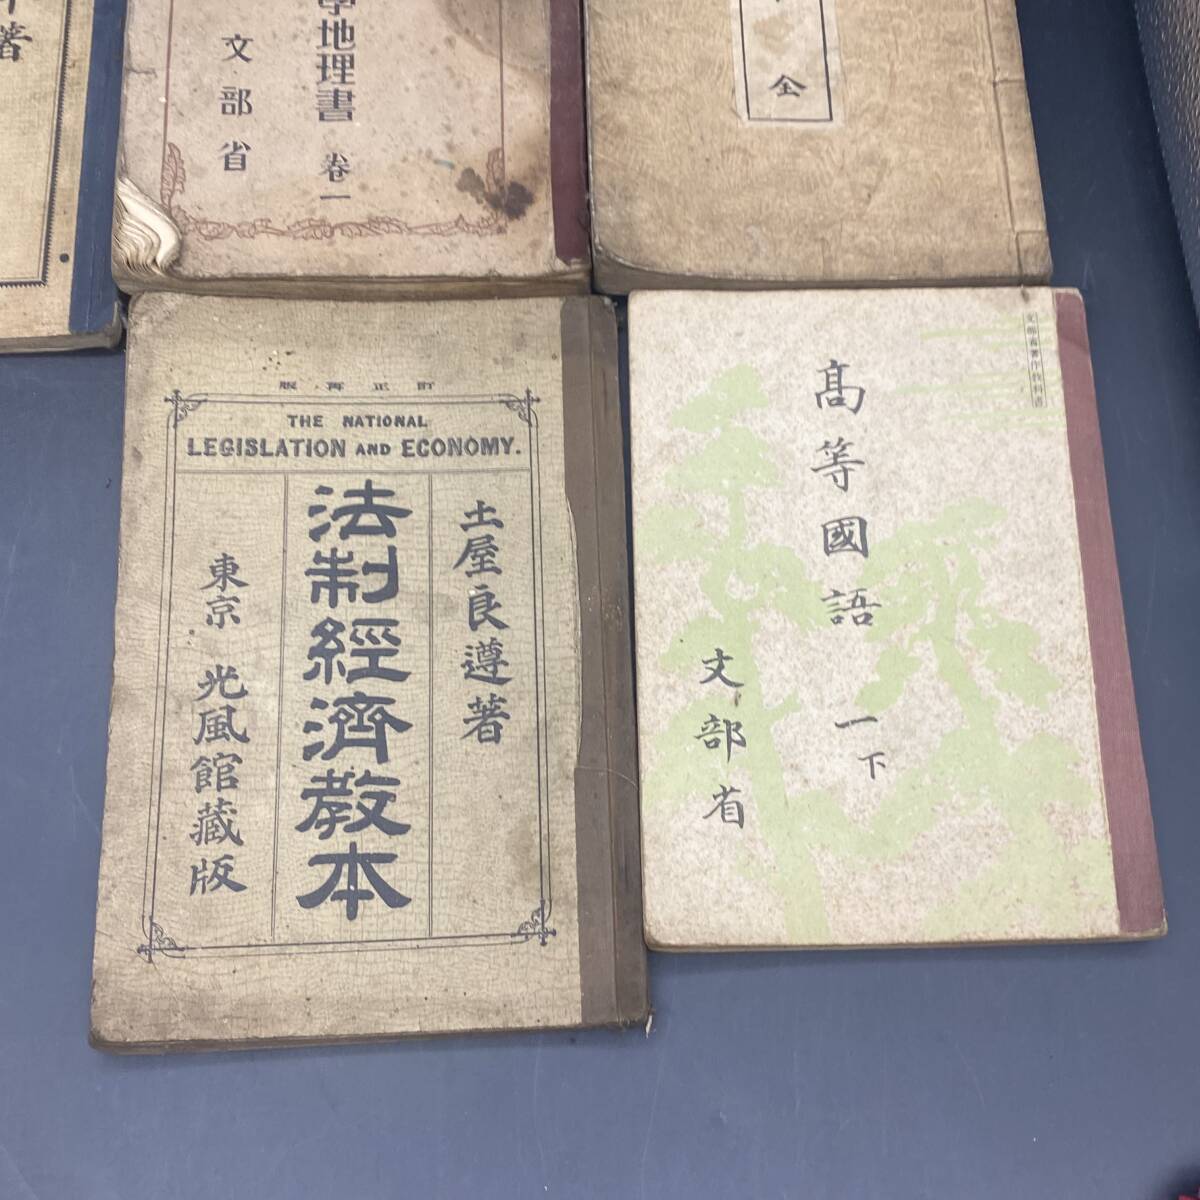 著
學地理書 卷一
文部省
全
訂正再版
THE NATIONAL
LEGISLATION AND ECONOMY.
土屋良遵著
法制經濟教本
東京 光風館藏版
文部省著作教科書
高等國語 一下
文部省